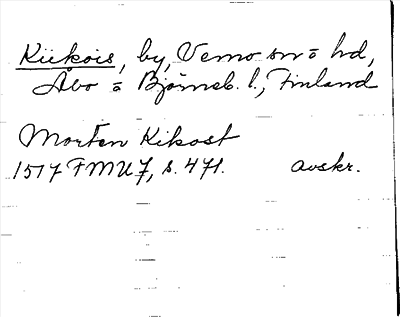 Kiikois, by, Vemo sn o hd,
Åbo o Björneb. l., Finland
Morten Kikost
1517 FMU 7, s. 471. avskr.